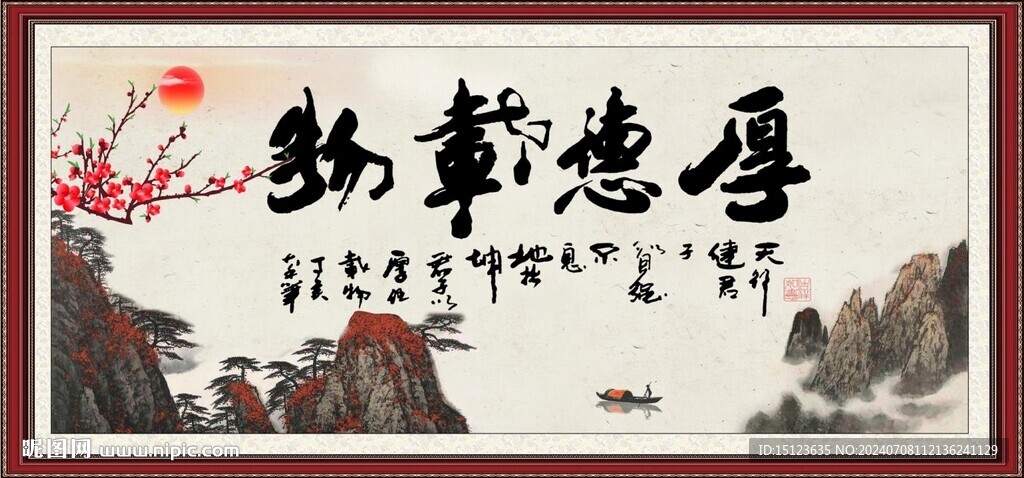 厚德載物
天行
健君
子
以自强
不
息
地势
坤
君子以
厚德
載物
丁亥
昵图网 www.nipic.com
ID:15123635 NO:20240708112136241129